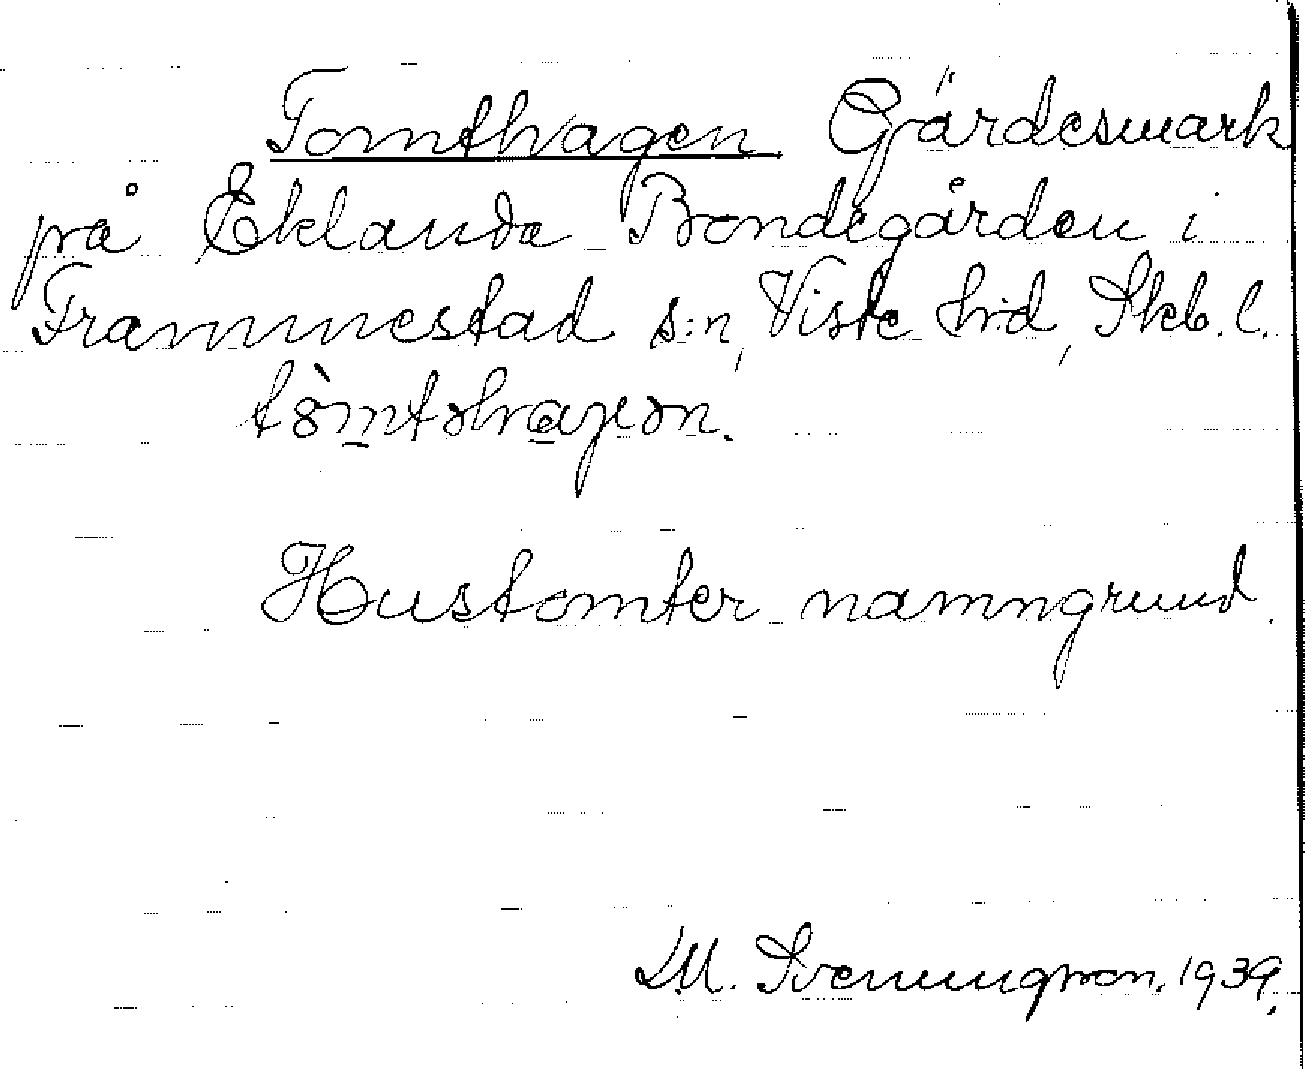 Tomthagen Gärdesmark
på Eklanda Bondegården i
Frammestad s:n, Viste hrd, Skb. l.
Hustomter namngrund.
M. Svenungson. 1939.